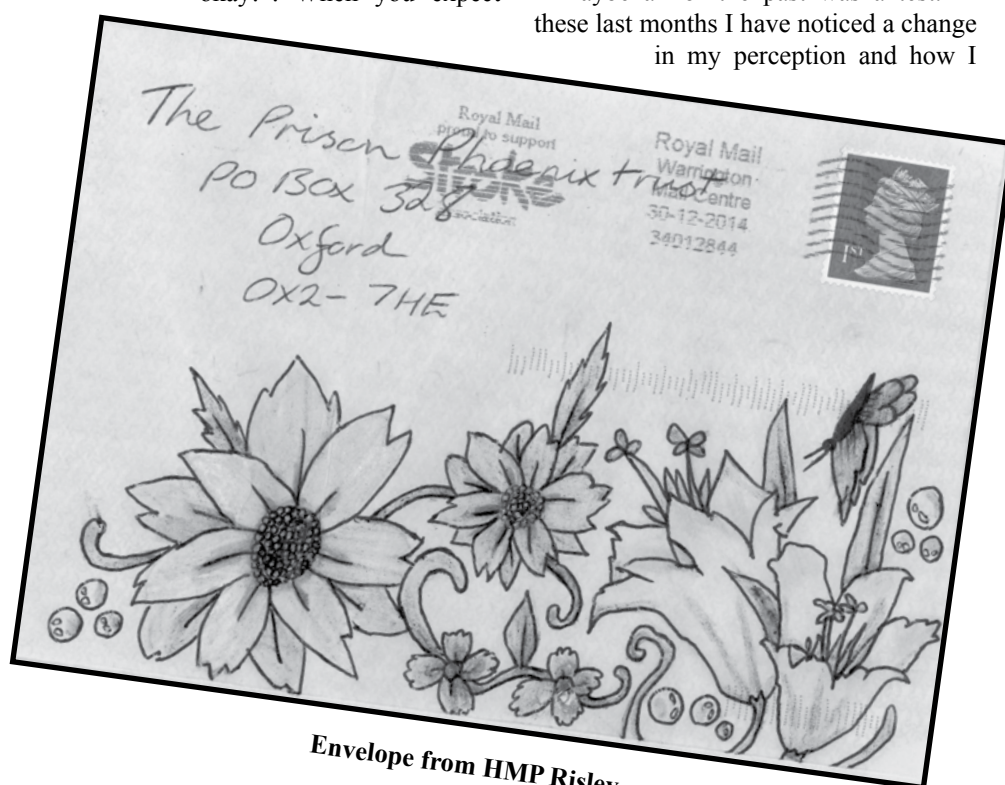 okay? . When you expect
these last months I have noticed a change
in my perception and how I
The Prison Phoenix trust
PO BOX 328
Oxford
OX2 - 7HE
Royal Mail
proud to support
STROKE
association
Royal Mail
Warrington
Mail Centre
30-12-2014
34012844
1ST
Envelope from HMP Risley